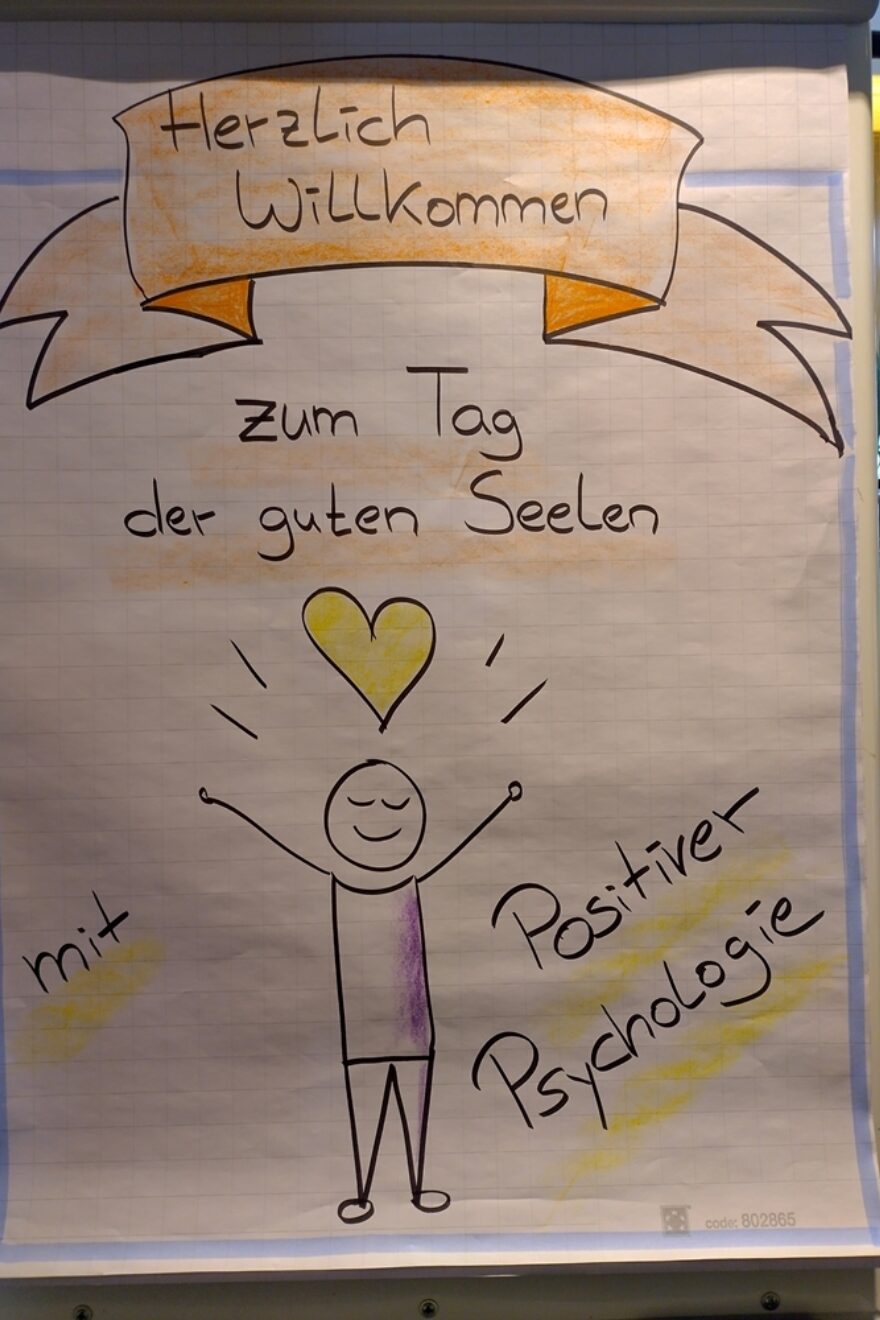 Herzlich
Willkommen
zum Tag
der guten Seelen
mit
Positiver
Psychologie
code: 802865